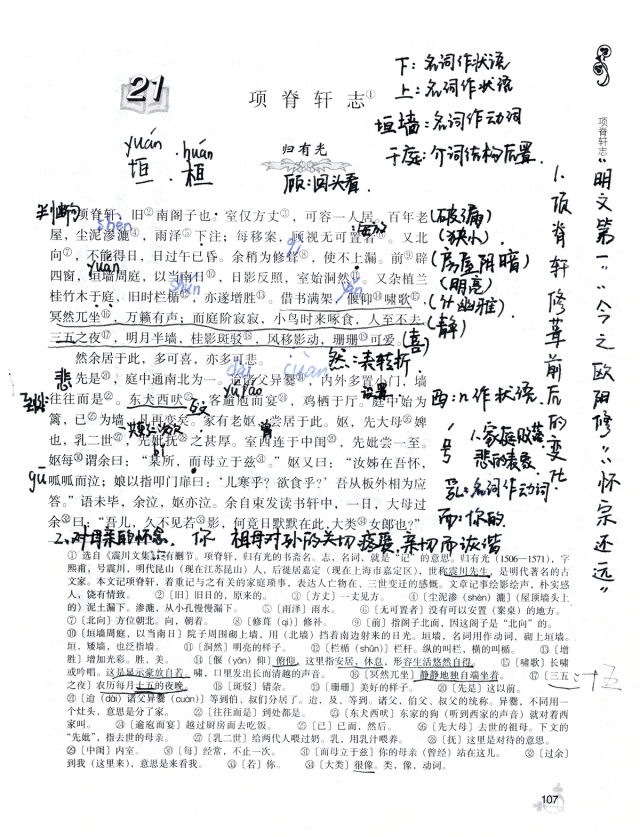 21
项脊轩志①
归有光
下：名词作状语
上：名词作状语
垣墙：名词作动词
于庭：介词结构后置
yuán huán
垣 桓
顾：回头看
项脊轩志
"明文第一""今之欧阳修""怀宗还远"
1、项脊轩修葺前后的变化
项脊轩，旧②南阁子也。室仅方丈③，可容一人居。百年老
屋，尘泥渗漉④，雨泽⑤下注；每移案，顾视无可置者⑥。又北
向⑦，不能得日，日过午已昏。余稍为修葺⑧，使不上漏。前⑨辟
四窗，垣墙周庭，以当南日⑩，日影反照，室始洞然⑪。又杂植兰
桂竹木于庭，旧时栏楯⑫，亦遂增胜⑬。借书满架，偃仰⑭啸歌⑮，
冥然兀坐⑯，万籁有声；而庭阶寂寂，小鸟时来啄食，人至不去。
三五之夜⑰，明月半墙，桂影斑驳⑱，风移影动，珊珊⑲可爱。
然余居于此，多可喜，亦多可悲。
先是⑳，庭中通南北为一。迨诸父异爨㉑，内外多置小门，墙
往往而是㉒。东犬西吠㉓，客逾庖而宴㉔，鸡栖于厅。庭中始为
篱，已㉕为墙，凡再变矣。家有老妪，尝居于此。妪，先大母㉖婢
也，乳二世㉗，先妣抚㉘之甚厚。室西连于中闺㉙，先妣尝一至。
妪每㉚谓余曰："某所，而母立于兹㉛。"妪又曰："汝姊在吾怀，
呱呱而泣；娘以指叩门扉曰：'儿寒乎？欲食乎？'吾从板外相为应
答。"语未毕，余泣，妪亦泣。余自束发读书轩中，一日，大母过
余㉜曰："吾儿，久不见若㉝影，何竟日默默在此，大类㉞女郎也？"
(破漏)
(狭小)
(房屋阴暗)
(明亮)
(静)
(喜)
然：表转折
悲
西：n作状语
1、家庭败落
悲的表象
乳：名词作动词
而：你的
gū
2、对母亲的怀念
你
祖母对孙的关切疼爱，亲切而诙谐
① 选自《震川文集》，有删节。项脊轩，归有光的书斋名。志，名词，就是"记"的意思。归有光（1506—1571），字
熙甫，号震川，明代昆山（现在江苏昆山）人，后徙居嘉定（现在上海市嘉定区），世称震川先生，是明代著名的古
文家。本文记项脊轩，着重记与之有关的家庭琐事，表达人亡物在、三世变迁的感慨。文章记事绘影绘声，朴实感
人，饶有情致。 ②〔旧〕旧日的，原来的。 ③〔方丈〕一丈见方。 ④〔尘泥渗（shèn）漉〕（屋顶墙头上
的）泥土漏下。渗漉，从小孔慢慢漏下。 ⑤〔雨泽〕雨水。 ⑥〔无可置者〕没有可以安置（案桌）的地方。
⑦〔北向〕方位朝北。向，朝着。 ⑧〔修葺（qì）〕修补。 ⑨〔前〕指阁子北面，因这阁子是"北向"的。
⑩〔垣墙周庭，以当南日〕院子周围砌上墙，用（北墙）挡着南边射来的日光。垣墙，名词用作动词，砌上垣墙。
垣，矮墙，也泛指墙。 ⑪〔洞然〕明亮的样子。 ⑫〔栏楯（shǔn）〕栏杆。纵的叫栏，横的叫楯。 ⑬〔增
胜〕增加光彩。胜，美。 ⑭〔偃（yǎn）仰〕俯仰，这里指安居、休息，形容生活悠然自得。 ⑮〔啸歌〕长啸
或吟唱。这是显示豪放自若。啸，口里发出长而清越的声音。 ⑯〔冥然兀坐〕静静地独自端坐着。 ⑰〔三五
之夜〕农历每月十五的夜晚。 ⑱〔斑驳〕错杂。 ⑲〔珊珊〕美好的样子。 ⑳〔先是〕这以前。
㉑〔迨（dài）诸父异爨（cuàn）〕等到伯、叔们分居了。迨，及，等到。诸父，伯父、叔父的统称。异爨，不同用一
个灶头，意思是分了家。 ㉒〔往往而是〕到处都是。 ㉓〔东犬西吠〕东家的狗（听到西家的声音）就对着西
家叫。 ㉔〔逾庖而宴〕越过厨房而去吃饭。 ㉕〔已〕已而，然后。 ㉖〔先大母〕去世的祖母。下文的
"先妣"，指去世的母亲。 ㉗〔乳二世〕给两代人喂过奶。乳，用乳汁喂养。 ㉘〔抚〕这里是对待的意思。
㉙〔中闺〕内室。 ㉚〔每〕经常，不止一次。 ㉛〔而母立于兹〕你的母亲（曾经）站在这儿。 ㉜〔过余〕
到我（这里来），意思是来看我。 ㉝〔若〕你。 ㉞〔大类〕很像。类，像，动词。
107